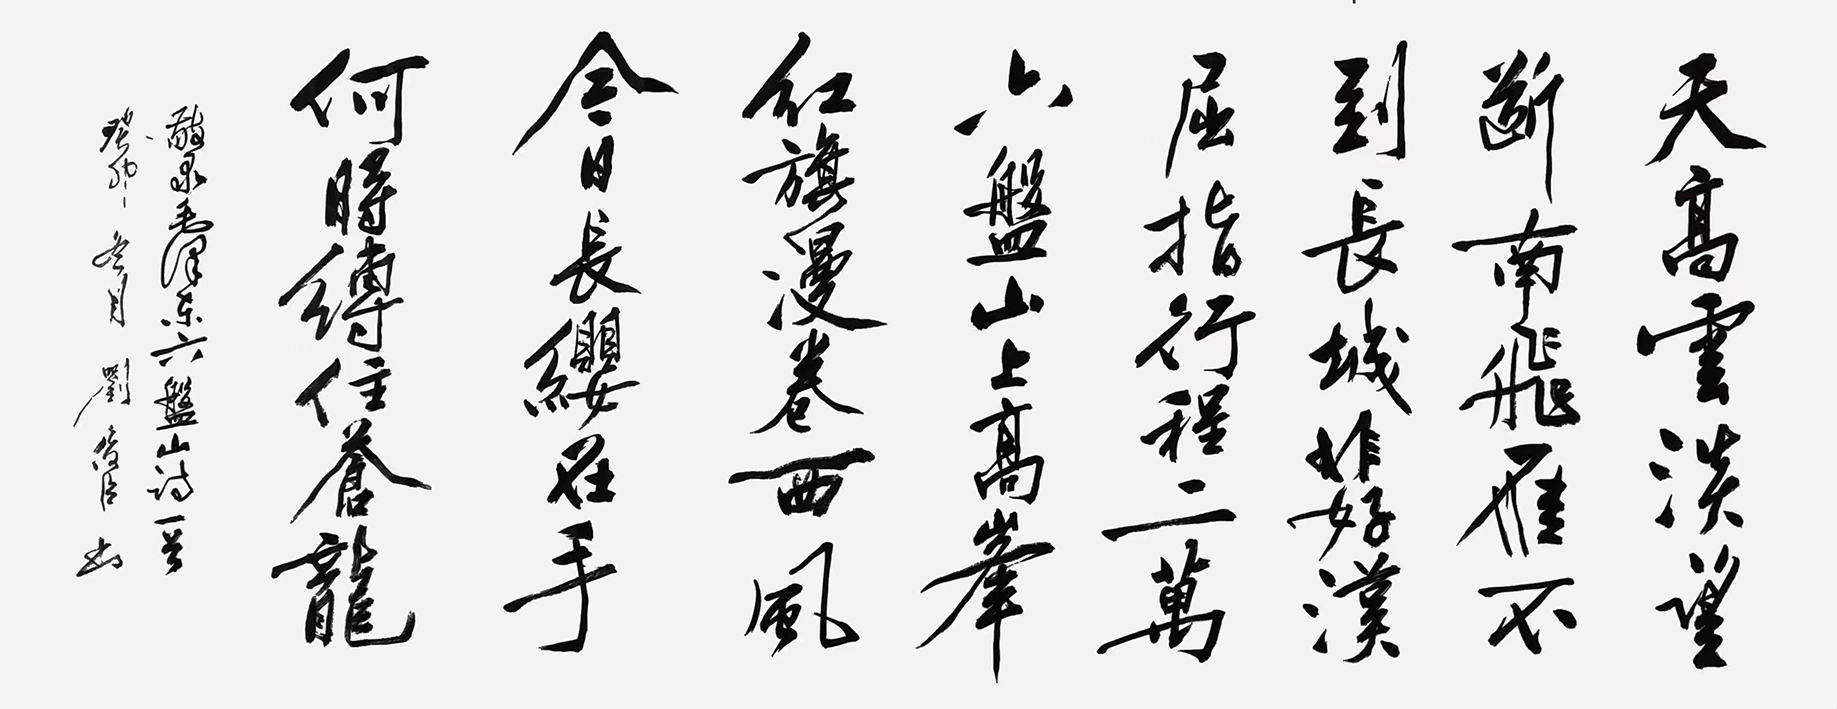 天高雲淡望
斷南飛雁不
到長城非好漢
屈指行程二萬
六盤山上高峯
紅旗漫卷西風
今日長纓在手
何時縛住蒼龍
敬录毛澤东六盤山诗一首
癸卯冬月 劉俊臣 书